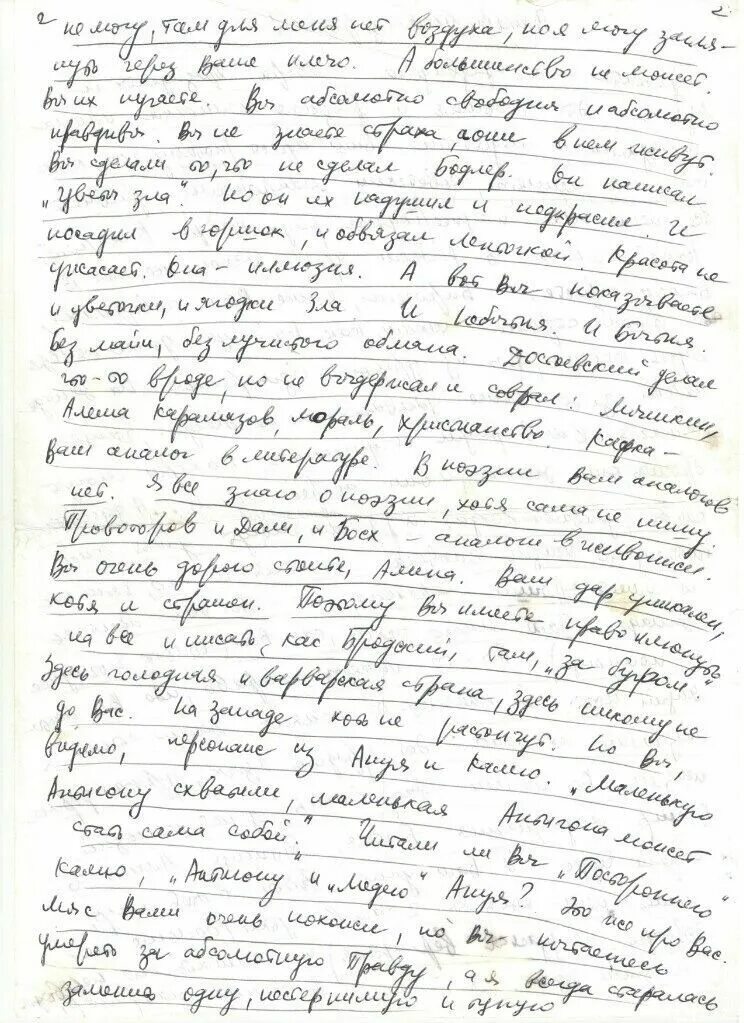 2 2.
не могу, там для меня нет воздуха, но я могу загля-
нуть через Ваше плечо. А большинство не может.
Вы их пугаете. Вы абсолютно свободны и абсолютно
правдивы. Вы не знаете страха, а они в нем живут.
Вы сделали то, что не сделал Бодлер. Он написал
„Цветы зла". Но он их надушил и подкрасил. И
посадил в горшок, и обвязал ленточкой. Красота не
ужасает. Она – иллюзия. А вот Вы показываете
и цветочки, и ягодки Зла. И Небытия. И Бытия.
Без майи, без лучистого обмана. Достоевский делал
что-то вроде, но не выдержал и соврал: Мышкин,
Алеша Карамазов, мораль, христианство. Кафка –
Ваш аналог в литературе. В поэзии Вам аналогов
нет. Я все знаю о поэзии, хотя сама не пишу.
Провоторов и Дали, и Босх – аналоги в живописи.
Вы очень дорого стоите, Алина. Ваш дар уникален,
хотя и страшен. Поэтому Вы имеете право плюнуть
на все и писать, как Бродский, там, „за бугром".
Здесь голодная и варварская страна, здесь никому не
до Вас. На западе хоть не растопчут. Но Вы,
видимо, персонаж из Ануя и Камю. „Маленькую
Антигону схватили, маленькая Антигона может
стать сама собой". Читали ли Вы „Постороннего"
Камю, „Антигону" и „Медею" Ануя? Это же про Вас.
Мы с Вами очень похожи, но Вы пытаетесь
умереть за абсолютную Правду, а я всегда старалась
заменить одну, нестерпимую и тупую